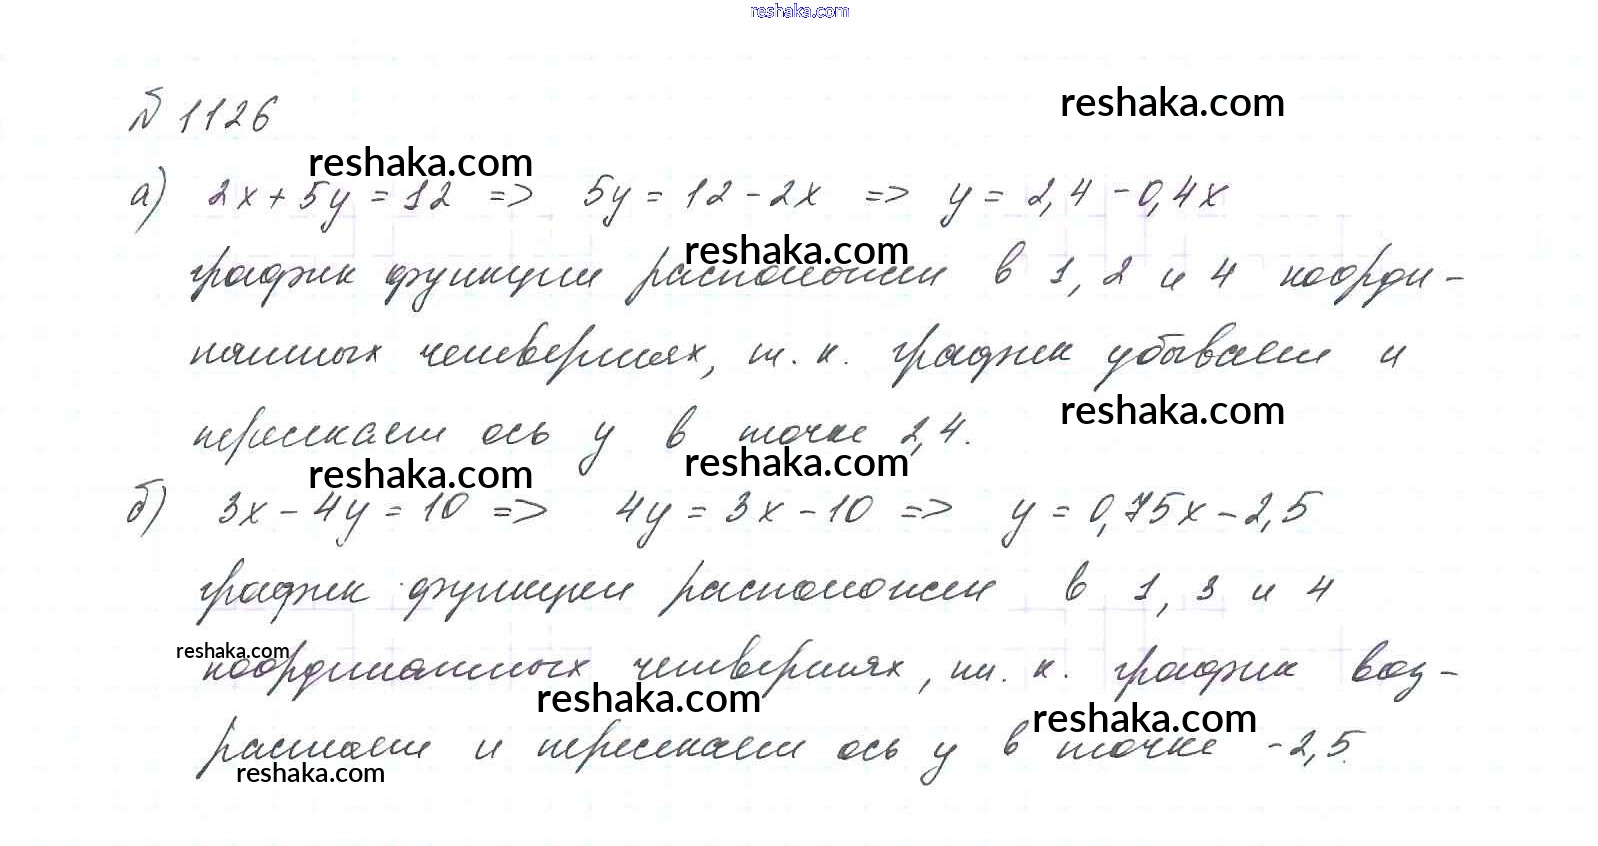 reshaka.com
№ 1126
reshaka.com
reshaka.com
а) 2x + 5y = 12 => 5y = 12 - 2x => y = 2,4 - 0,4x
reshaka.com
график функции расположен в 1, 2 и 4 коорди-
натных четвертях, т. к. график убывает и
reshaka.com
пересекает ось y в точке 2,4.
reshaka.com
reshaka.com
б) 3x - 4y = 10 => 4y = 3x - 10 => y = 0,75x - 2,5
график функции расположен в 1, 3 и 4
reshaka.com
координатных четвертях, т. к. график воз-
reshaka.com
reshaka.com
растает и пересекает ось y в точке -2,5.
reshaka.com